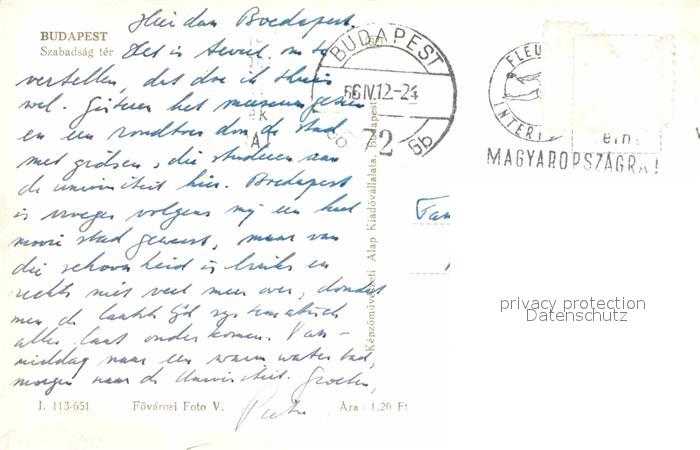 BUDAPEST
Szabadság tér
Hier dan Boedapest.
Het is teveel om te
vertellen, dat doe ik thuis
wel. Gisteren het museum gezien
en een rondtoer door de stad
met gidsen, die studeren aan
de universiteit hier. Boedapest
is vroeger volgens mij een heel
mooie stad geweest, maar van
die schoonheid is links en
rechts niet veel meer over, doordat
men de laatste tijd systematisch
alles laat onderkomen. Van-
middag naar een warm water bad,
morgen naar de Universiteit. Groeten,
BUDAPEST
66 IV.12-24
72
6b
FLEU
INTER
MAGYARORSZÁGRA!
Fam
Képzőművészeti Alap Kiadóvállalata, Budapest
privacy protection
Datenschutz
I. 113-651
Fővárosi Foto V.
Ára: 1,20 Ft